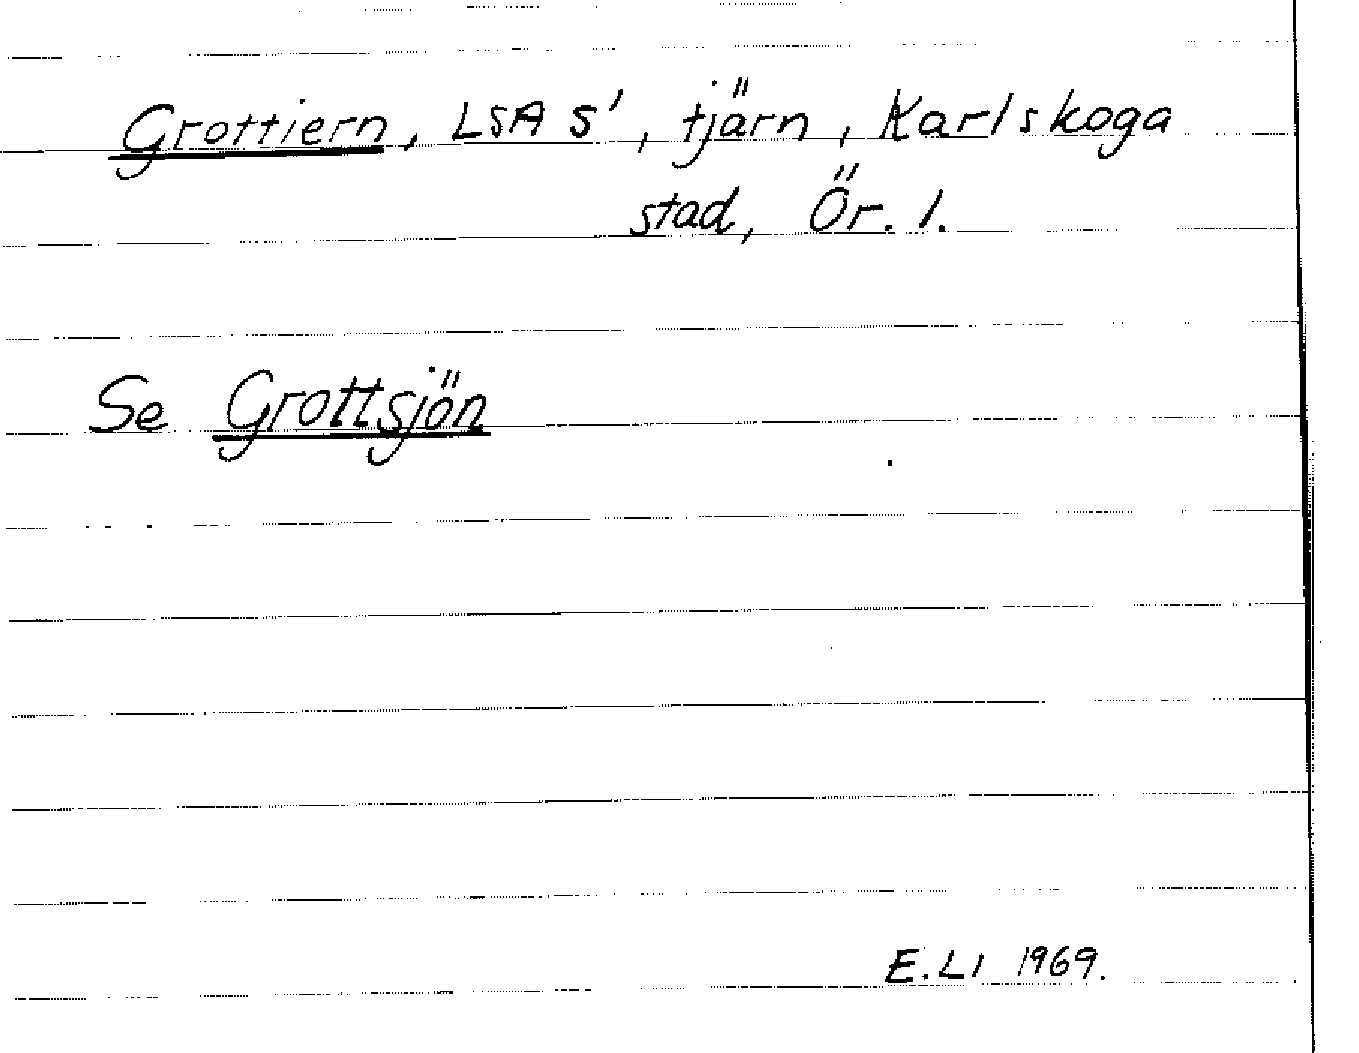 Grottiern, LSA S', tjärn, Karlskoga
stad, Ör. l.
Se Grottsjön
E.LI 1969.